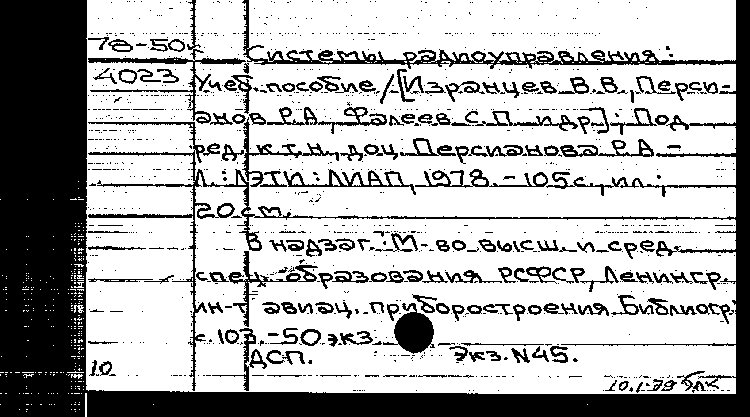 78-50к Системы радиоуправления:
4023 Учеб. пособие/[Изранцев В.В., Перси-
анов Р.А., Фалеев С.П. и др.]; Под
ред. к.т.н., доц. Персианова Р.А. -
Л.: ЛЭТИ: ЛИАП, 1978. - 105 с., ил.;
20 см.
В надзаг.: М-во высш. и сред.
спец. образования РСФСР, Ленингр.
ин-т авиац. приборостроения. Библиогр.:
с. 103. - 50 экз.
ДСП. Экз. N45.
10
10.1-79